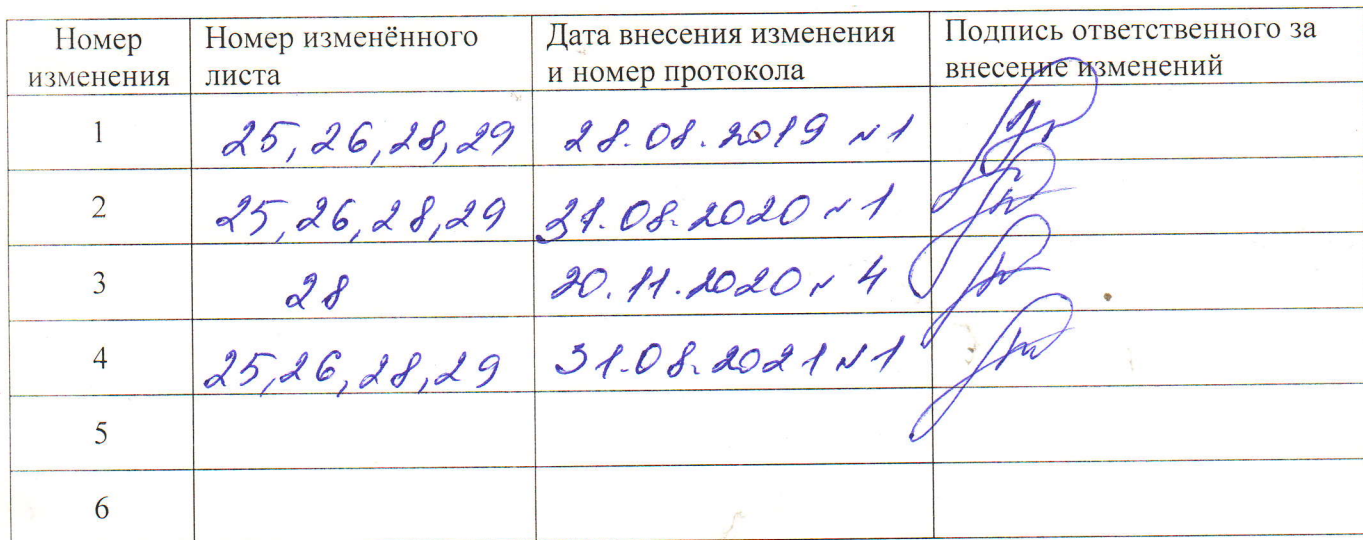 Номер изменения | Номер изменённого листа | Дата внесения изменения и номер протокола | Подпись ответственного за внесение изменений
1 | 25, 26, 28, 29 | 28.08.2019 №1
2 | 25, 26, 28, 29 | 31.08.2020 №1
3 | 28 | 20.11.2020 № 4
4 | 25, 26, 28, 29 | 31.08.2021 №1
5
6